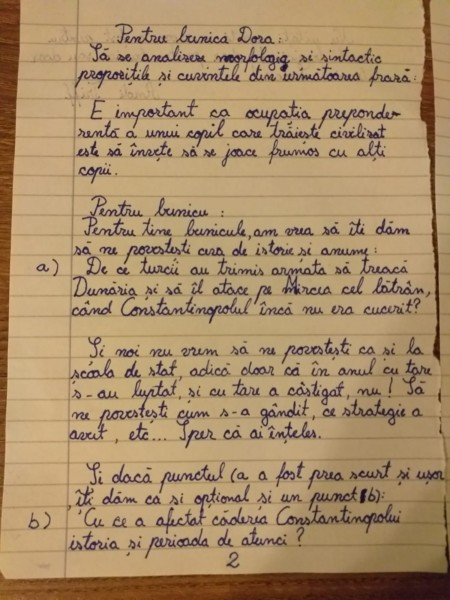 Pentru bunica Dora:
Să se analizeze morfologic și sintactic
propozițile și cuvintele din următoarea frază:
E important ca ocupația preponde-
rentă a unui copil care trăiește civilizat
este să învețe să se joace frumos cu alți
copii.
Pentru bunicu :
Pentru tine bunicule, am vrea să îți dăm
să ne povestești ceva de istorie și anume:
a) De ce turcii au trimis armata să treacă
Dunăria și să îl atace pe Mircea cel bătrân,
când Constantinopolul încă nu era cucerit?
Și noi nu vrem să ne povestești ca și la
școala de stat, adică doar că în anul cu tare
s-au luptat, și cu tare a câștigat, nu! Să
ne povestești cum s-a gândit, ce strategie a
avut, etc... Sper că ai înțeles.
Și dacă punctul (a a fost prea scurt și ușor
, îți dăm ca și opțional și un punct (b):
b) Cu ce a afectat căderea Constantinopolului
istoria și perioada de atunci?
2